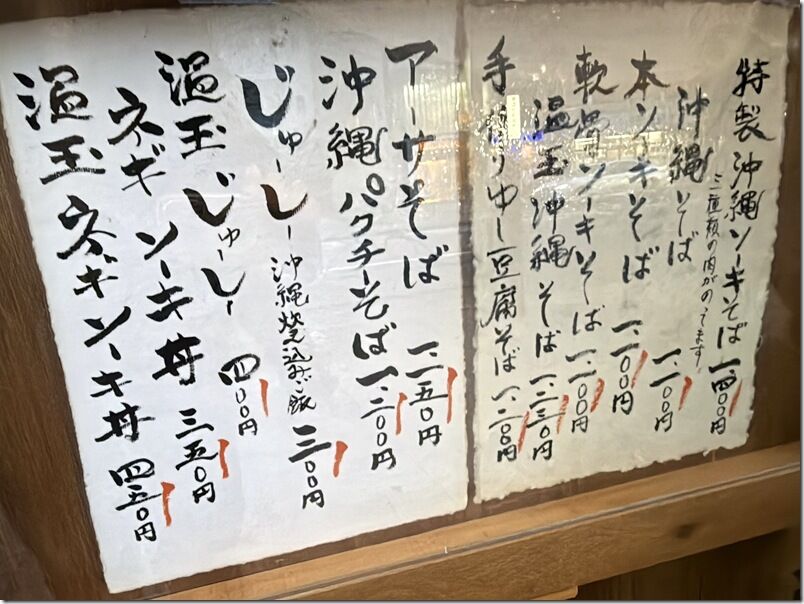 特製沖縄ソーキそば 一、四〇〇円
三種類の肉がのってます。
沖縄そば 一、一〇〇円
本ソーキそば 一、二〇〇円
軟骨ソーキそば 一、二〇〇円
温玉沖縄そば 一、二三〇円
手作りゆし豆腐そば 一、二〇〇円
アーサそば 一、二五〇円
沖縄パクチーそば 一、三〇〇円
じゅーしー 沖縄炊込みご飯 三〇〇円
温玉じゅーしー 四〇〇円
ネギソーキ丼 三五〇円
温玉ネギソーキ丼 四五〇円